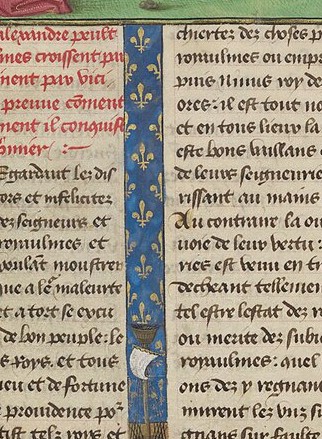 alexandre peult
mes croissent par
nent par vici
preuve comment
ment il conquist
onner :~
Egardant les dis
ors et infeliciter
des seigneurs et
royaulmes et
voulant monstrer
que a le maleurte
et a tort se excu
de bon peuple : le
s Roys. et tous
ieu et de fortune
e providence por
tist telz roys et
chertez des choses p
royaulmes ou emp
puis Ninus roy de
ores : il est tout no
et en tous lieux la
este bons vaillans
de leurs seigneurie
rissant au mains
Au contraire la ou
voie de leur vertu :
ries est venu en tr
decheant tellemen
tel estre lestat des r
ou merite des subie
royaulmes : quel
ons des y regnant
murent les vns si
gnans sur faulte